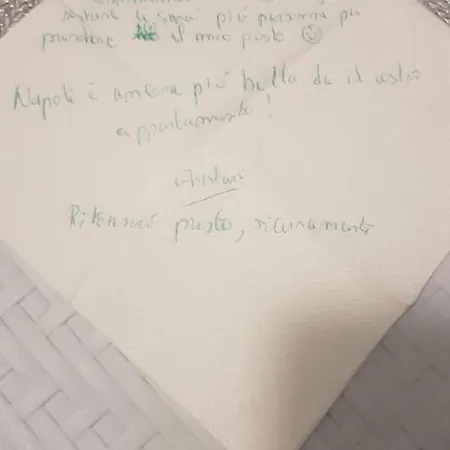 più persone per
prendere il mio posto
Napoli è ancora più bella da
appartamento!
Ritornerò presto, sicuramente